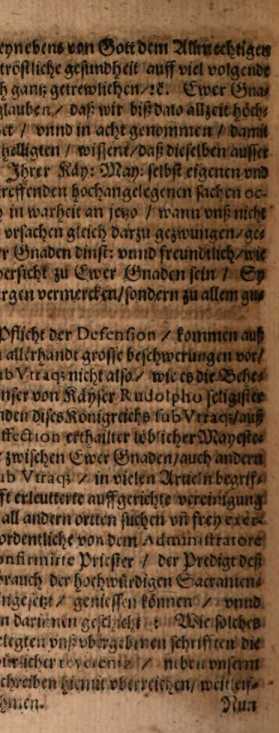 neben s von Gott dem Allmechtigen
tröstliche gesundheit auff viel volgende
h gantz getrewlichen/ꝛc. Ewer Gna⸗
glauben/ daß wir biß dato allzeit höch⸗
et / vnnd in acht genommen / damit
helligten / wissent/daß dieselben ausser
Ihrer Käy: May: selbst eigenen vnd
treffenden hochangelegenen sachen oc⸗
in warheit an jetzo / wann vnß nicht
vrsachen gleich darzu gezwungen/ge⸗
r Gnaden dinst: vnnd freundtlich/wie
versicht zu Ewer Gnaden sein / Sy
argen vermercken/sondern zu allem gu⸗
Pflicht der Defension / kommen auß
allerhandt grosse beschwerungen vor/
ub Vtraq; nicht also / wie es die Behe⸗
vnser von Käyser Rudolpho seligister
nden dises Königreichs sub Vtraq;/auß
ffection erthailter löblicher Mayeste⸗
/ zwischen Ewer Gnaden/auch andern
ub Vtraq; / in vielen Articln begriff⸗
fft erleutterte auffgerichte vereinigung
all andern ortten suchen vñ frey exer⸗
ordentliche von dem Administratore
onfirmirte Priester / der Predigt deß
brauch der hochwürdigen Sacramen⸗
ngesetzt / geniessen können / vnnd
n darinnen geschicht : Wie solches
legten vnß vbergebnen schrifften die
reverentz / neben vnserm
schreiben hiemit vberreichen/
hmen. Nun